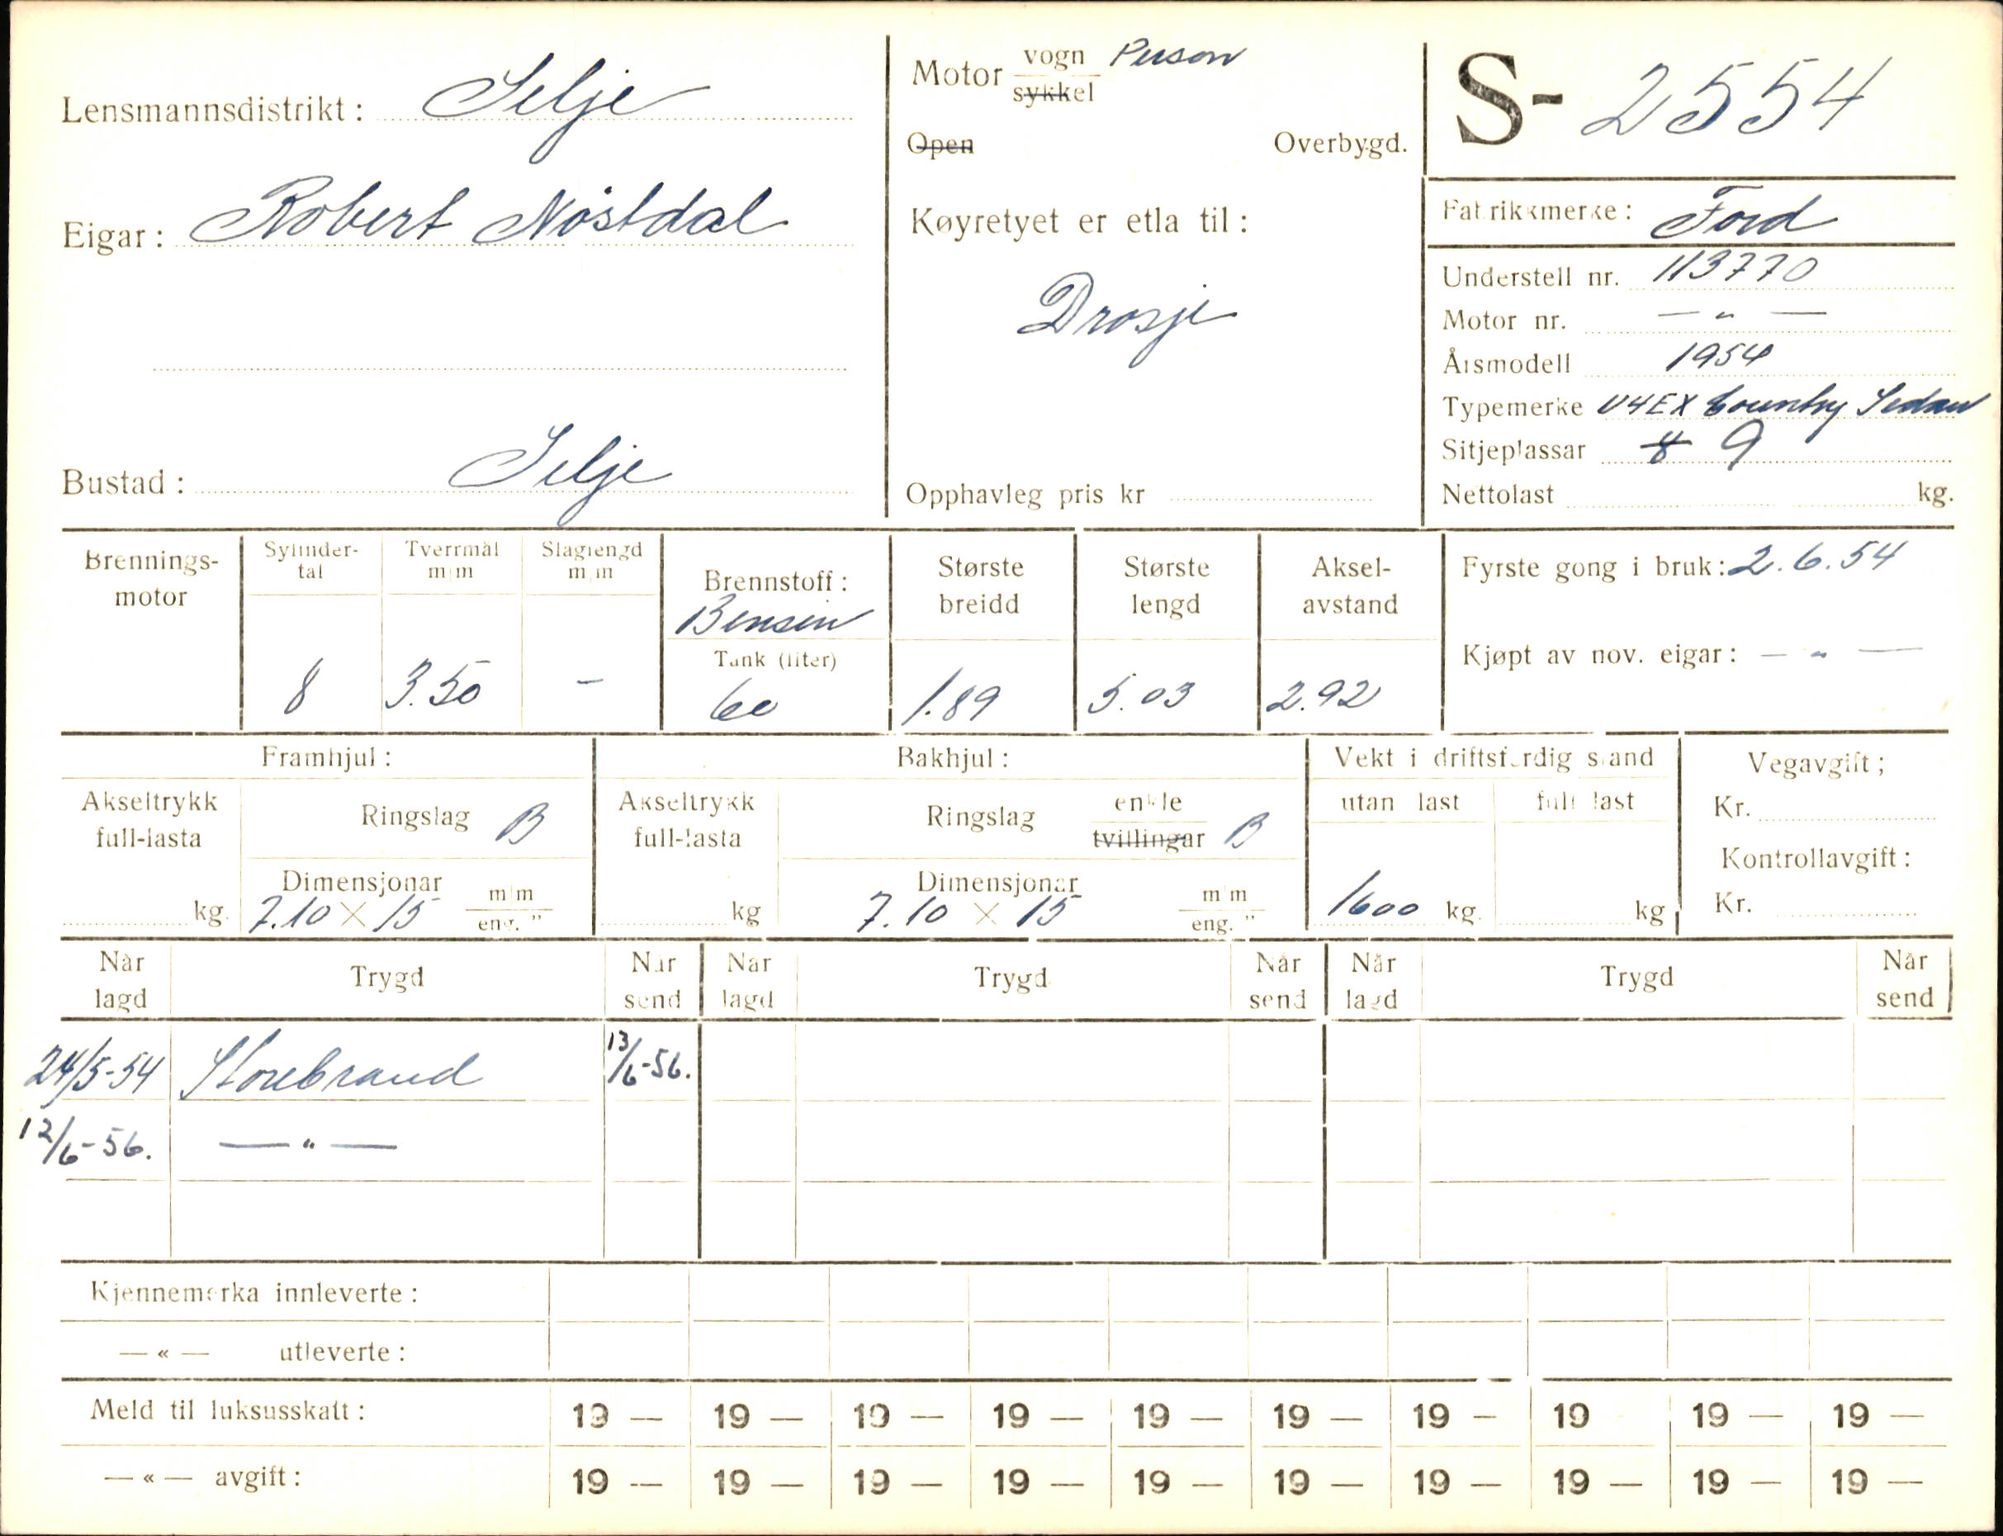 Lensmannsdistrikt: Selje
Eigar: Robert Nøstdal
Bustad: Selje
Motor vogn Person
sykkel
Open Overbygd.
Køyretyet er etla til:
Drosje
Opphavleg pris kr
S- 2554
Fabrikkmerke: Ford
Understell nr. 113770
Motor nr. — " —
Årsmodell 1954
Typemerke U4EX Country Sedan
Sitjeplassar 8 9
Nettolast kg.
Brennings-
motor
Sylinder-
tal
8
Tverrmål
m/m
3.50
Slaglengd
m/m
-
Brennstoff:
Bensin
Tank (liter)
60
Største
breidd
1.89
Største
lengd
5.03
Aksel-
avstand
2.92
Fyrste gong i bruk: 2.6.54
Kjøpt av nov. eigar: — " —
Framhjul:
Akseltrykk
full-lasta
kg.
Ringslag B
Dimensjonar
7.10 × 15 m/m
eng. "
Bakhjul:
Akseltrykk
full-lasta
kg
Ringslag enkle
tvillingar B
Dimensjonar
7.10 × 15 m/m
eng. "
Vekt i driftsferdig stand
utan last full last
1600 kg. kg
Vegavgift;
Kr.
Kontrollavgift:
Kr.
Når
lagd Trygd Når
send Når
lagd Trygd Når
send Når
lagd Trygd Når
send
24/5-54 Storebrand 13/6-56.
12/6-56. — " —
Kjennemerka innleverte:
— « — utleverte:
Meld til luksusskatt: 19 — 19 — 19 — 19 — 19 — 19 — 19 — 19 19 — 19 —
— « — avgift: 19 — 19 — 19 — 19 — 19 — 19 — 19 — 19 — 19 — 19 —